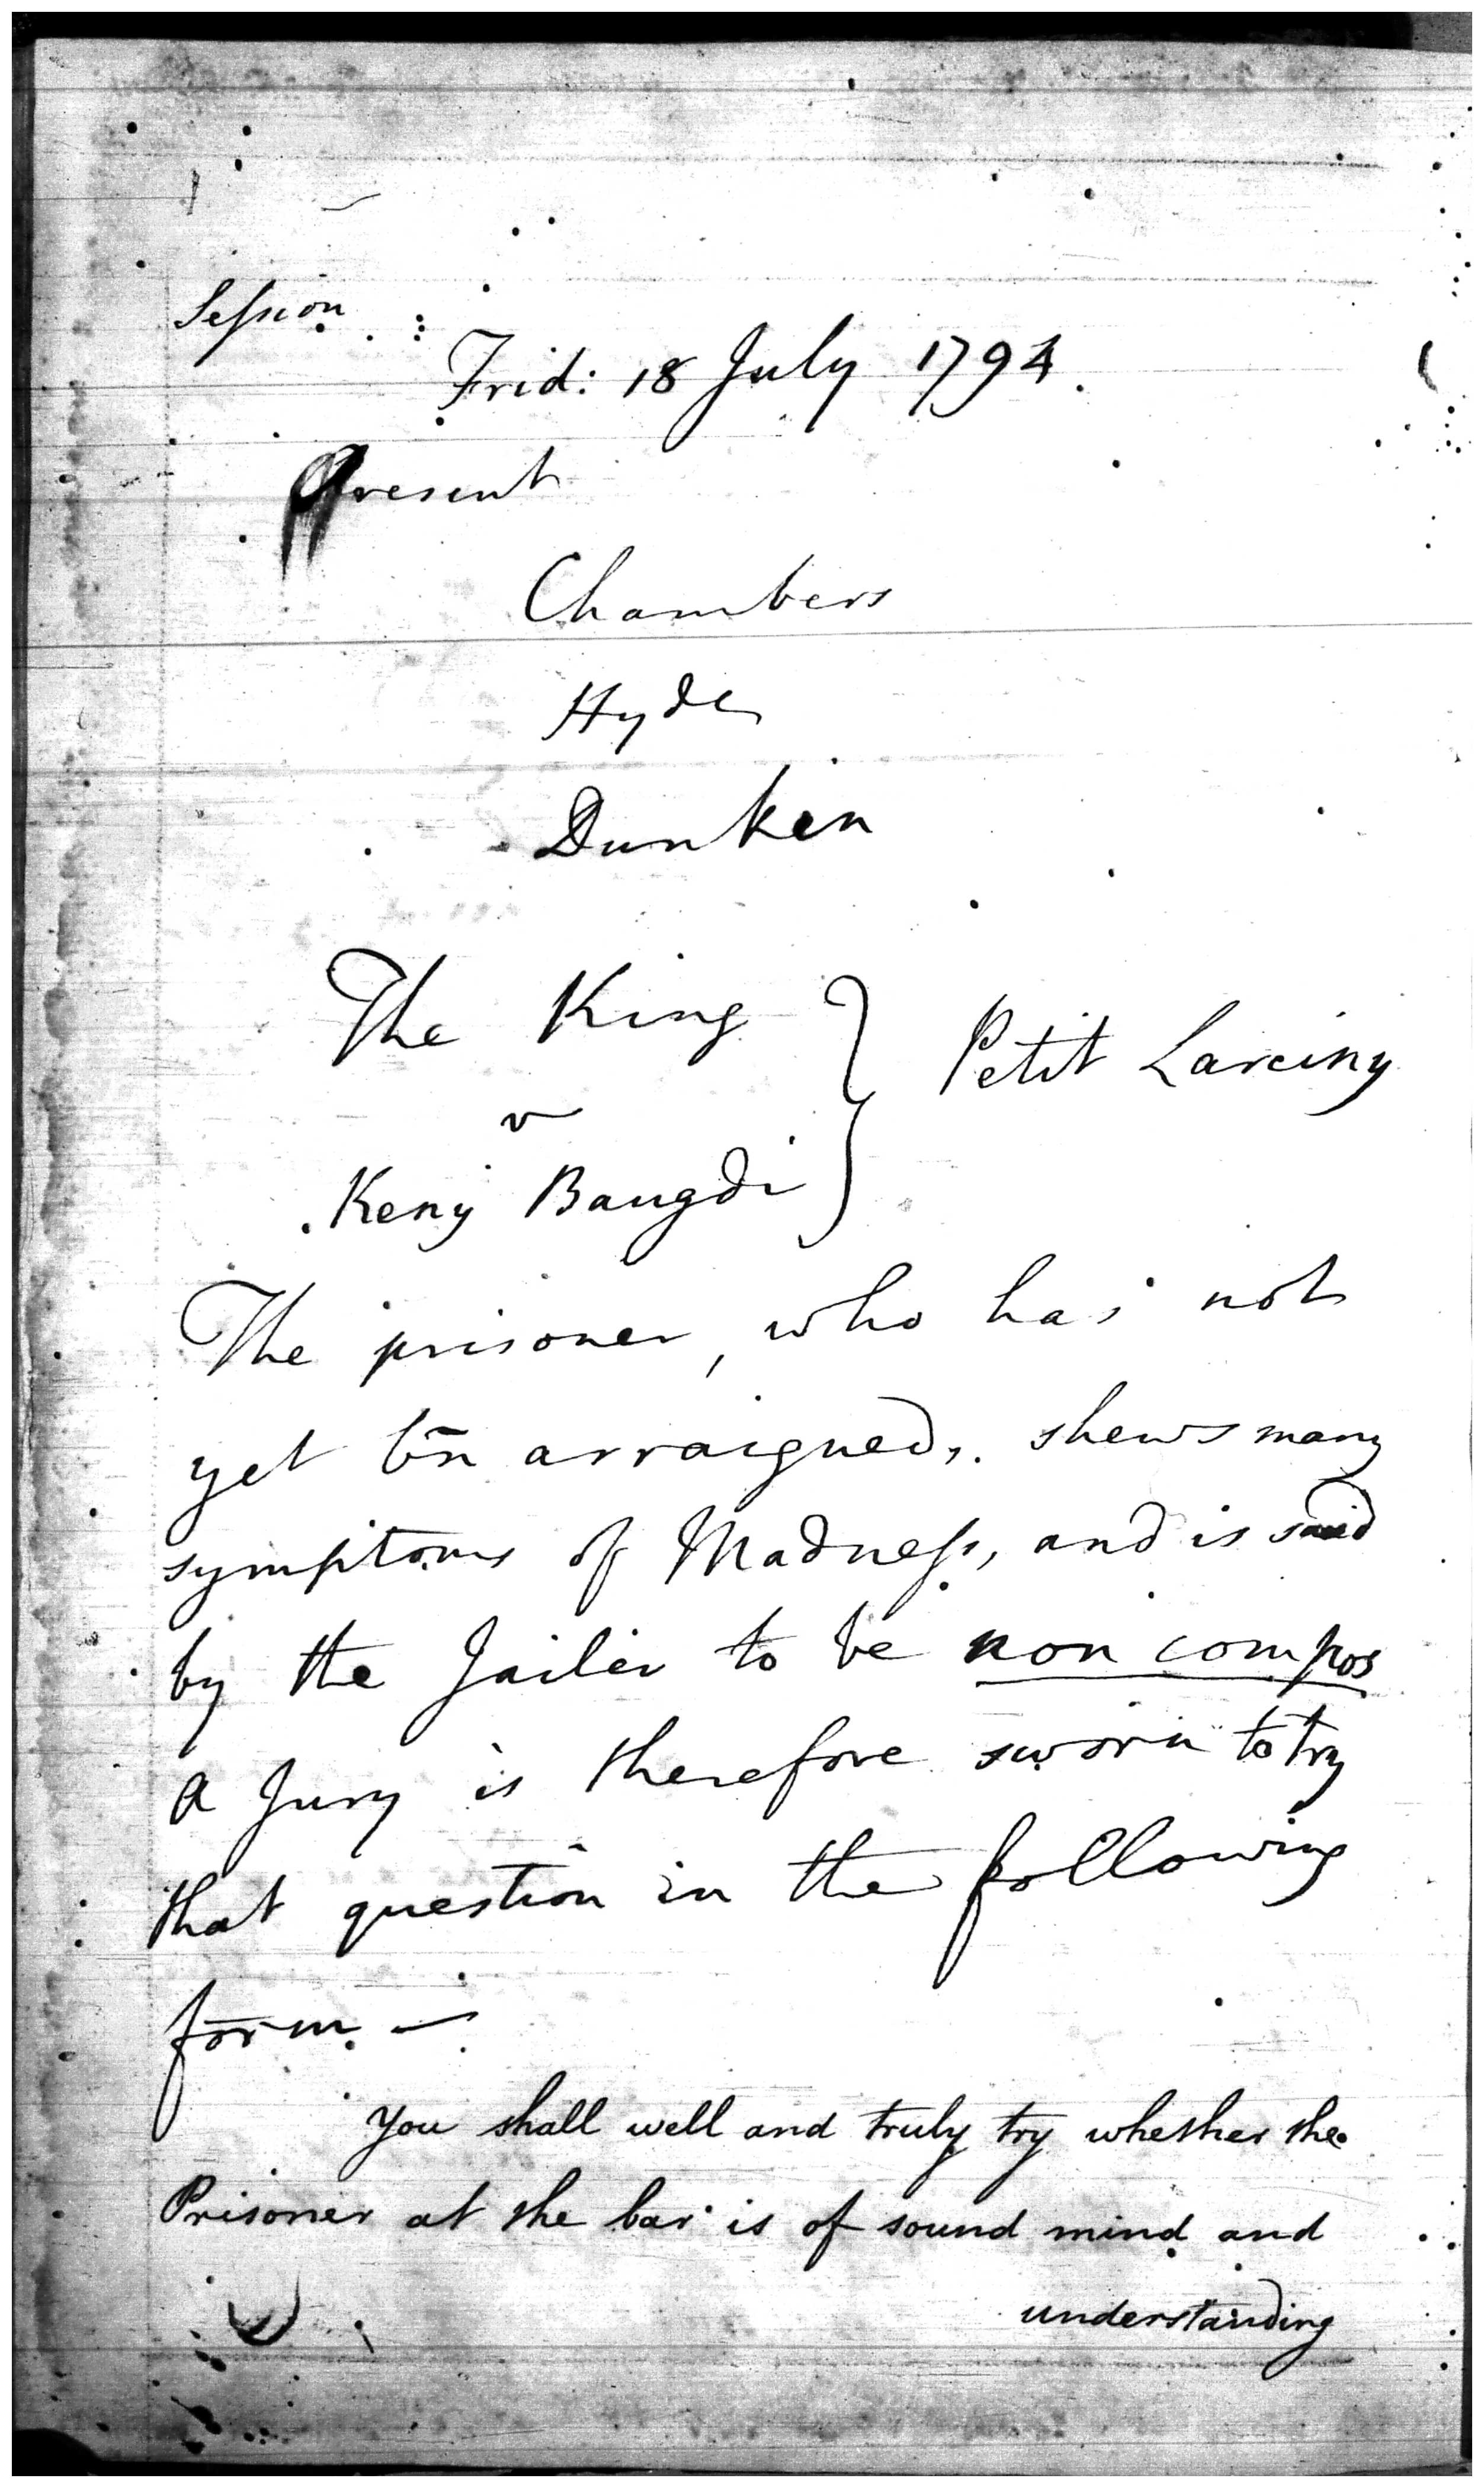 Session
Frid: 18 July 1794.
Present
Chambers
Hyde
Dunkin
The King
v
Keny Baugdi
Petit Larciny
The prisoner, who has not
yet bn arraigned, shews many
symptoms of Madness, and is said
by the Jailer to be non compos
A Jury is therefore sworn to try
that question in the following
form. —
You shall well and truly try whether the
Prisoner at the bar is of sound mind and
understanding